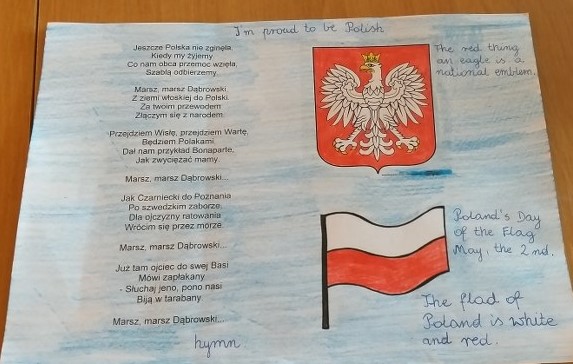 I'm proud to be Polish
Jeszcze Polska nie zginęła,
Kiedy my żyjemy
Co nam obca przemoc wzięła,
Szablą odbierzemy.
Marsz, marsz Dąbrowski,
Z ziemi włoskiej do Polski.
Za twoim przewodem
Złączym się z narodem.
Przejdziem Wisłę, przejdziem Wartę,
Będziem Polakami,
Dał nam przykład Bonaparte,
Jak zwyciężać mamy.
Marsz, marsz Dąbrowski...
Jak Czarniecki do Poznania
Po szwedzkim zaborze,
Dla ojczyzny ratowania
Wrócim się przez morze.
Marsz, marsz Dąbrowski...
Już tam ojciec do swej Basi
Mówi zapłakany
- Słuchaj jeno, pono nasi
Biją w tarabany.
Marsz, marsz Dąbrowski...
hymn
The red thing
an eagle is a
national emblem.
Poland's Day
of the Flag
May, the 2nd.
The flad of
Poland is white
and red.